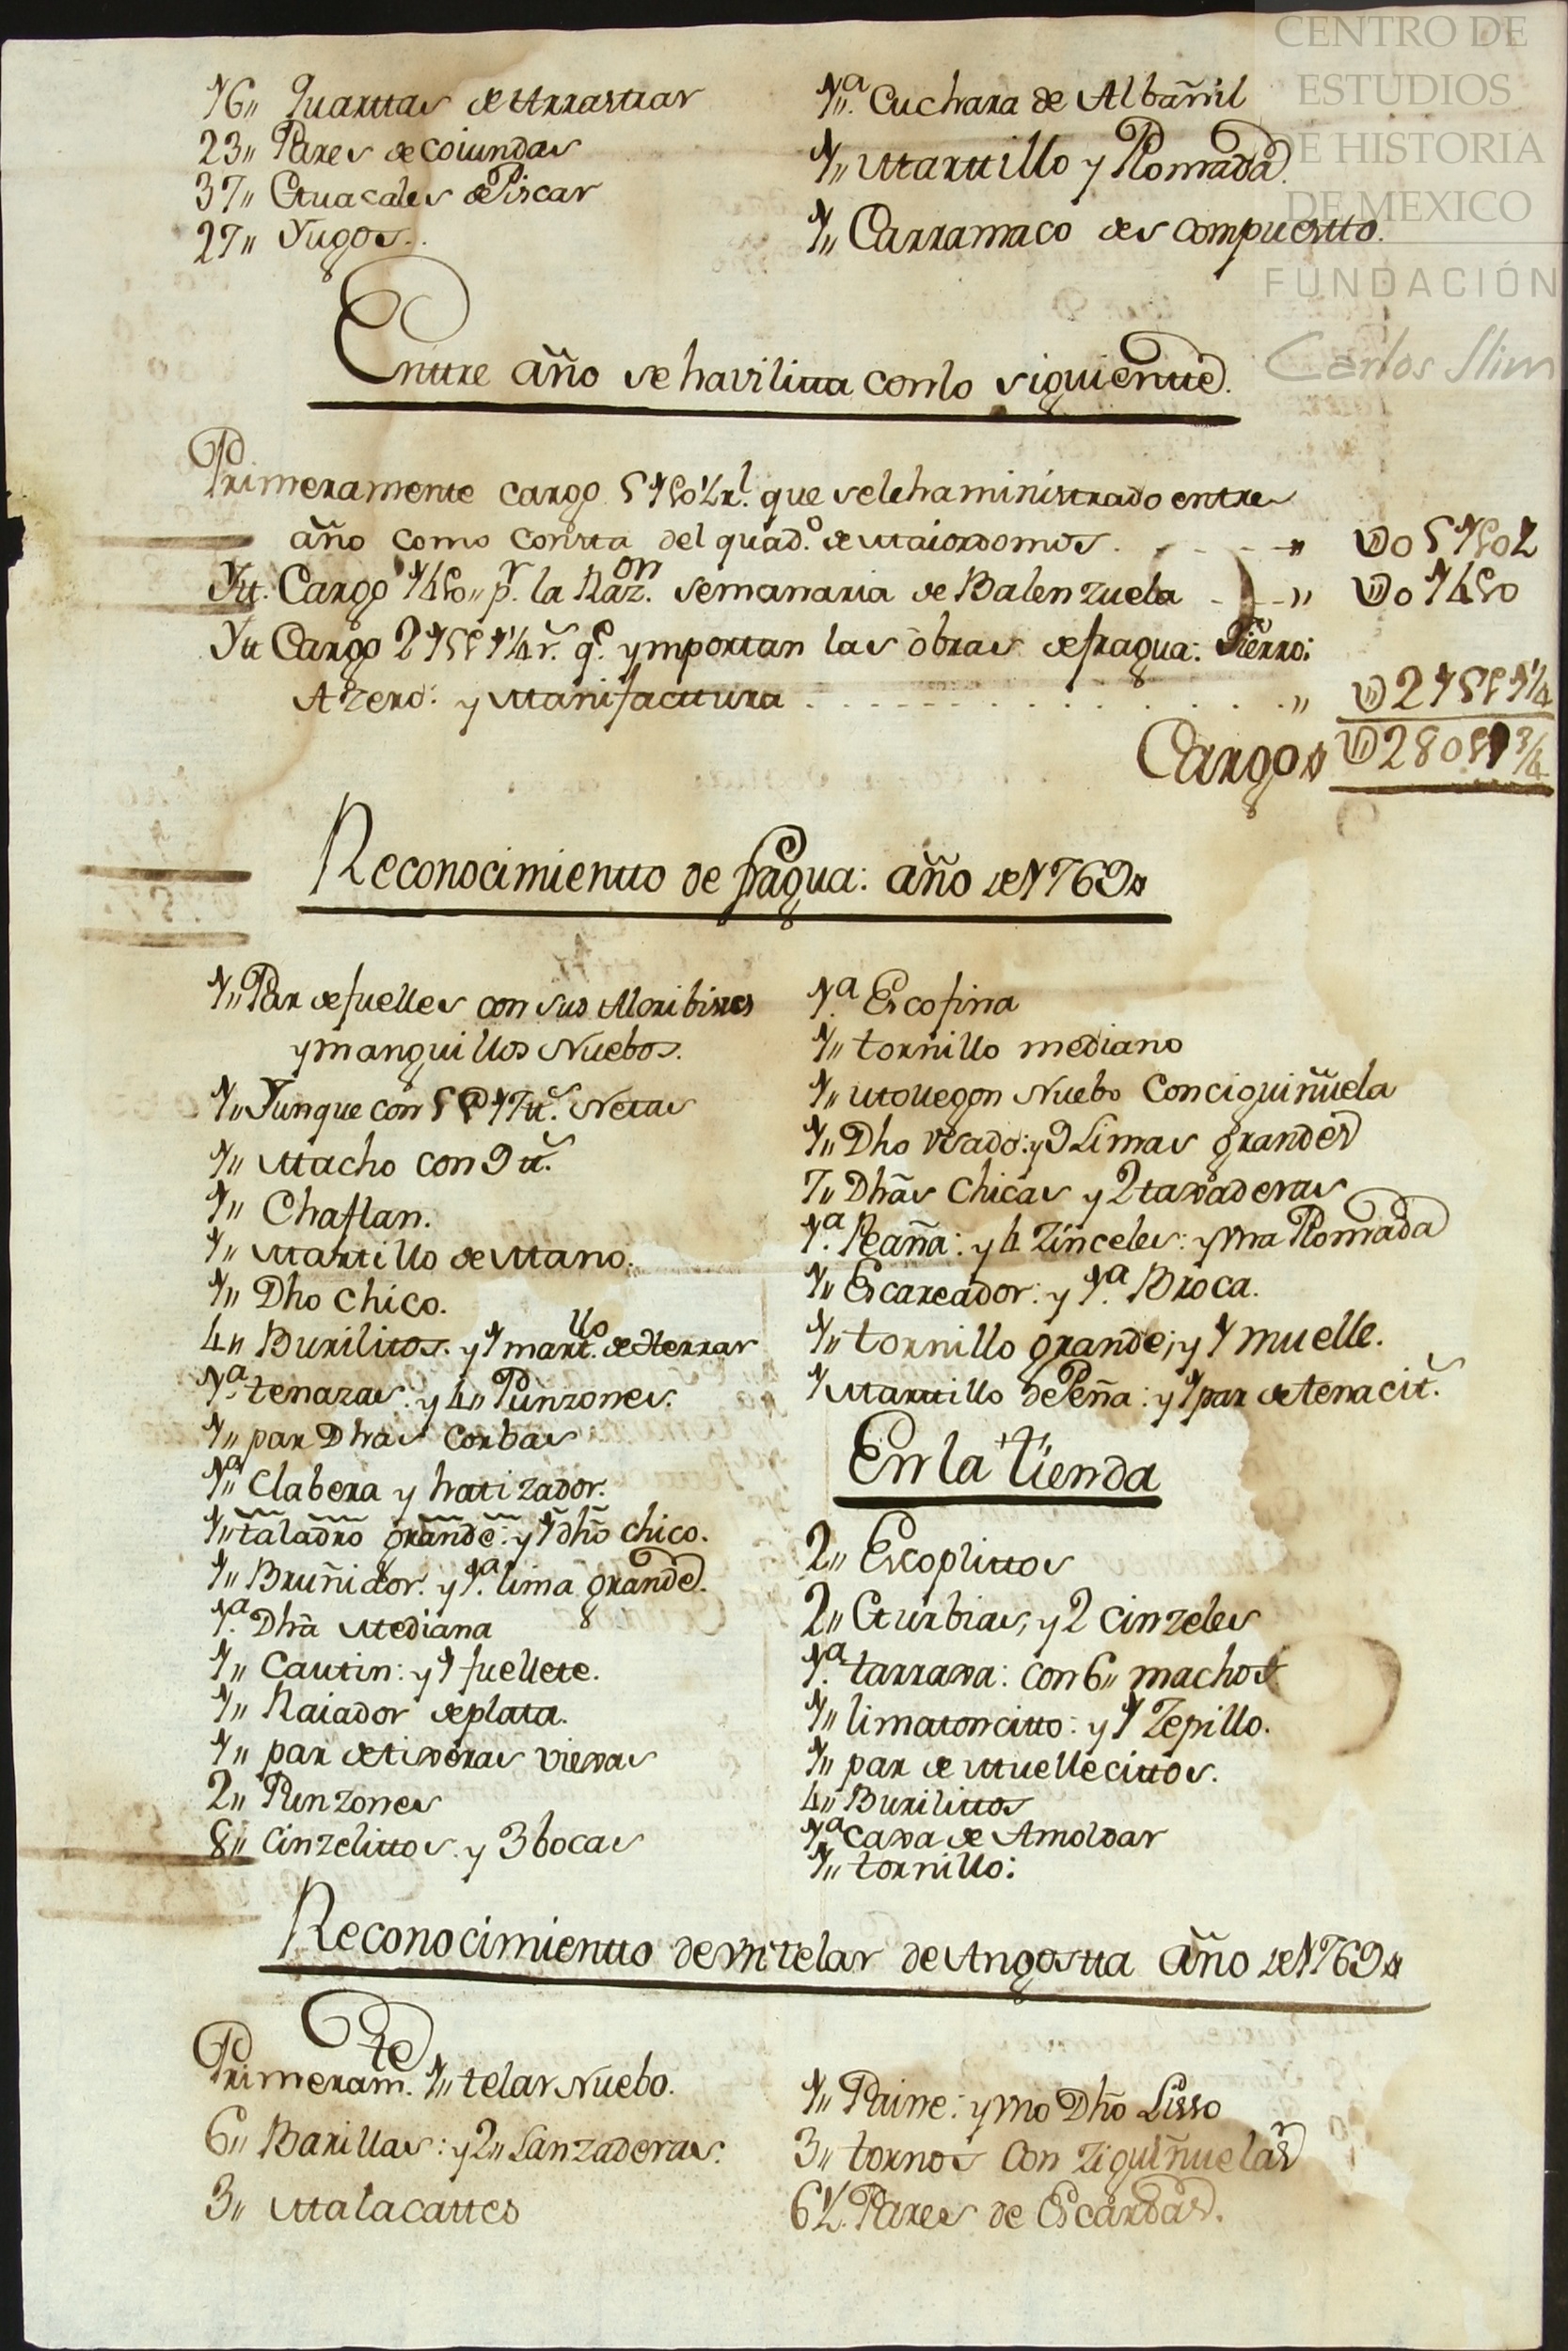 16,, Quarttas de Arrastrar
23,, Pares de coiundas
37,, Guacales de Piscar
27,, Yugos.
1,,ª Cuchara de Albañil
1,, Marttillo y Plomada.
1,, Carramaco descompuestto.
Enttre año se havilitta conlo siguientte.
Primeramente cargo 51p02½ rl. que selehaministrado entre
año como consta del quad.º de Maiordomos. - - - ,,
Yt. Cargo 14p0,, pr. la Raz.on semanaria de Balenzuela - - ,,
Yt Cargo 215p1¼ r.s q.e ymportan las obras de fragua: Fierro:
Azero: y Manifacttura . . . . . . ,,
Cargos
Reconocimientto de fragua: año de 1769
1,, Par de fuelles con sus Alcribises
y manguillos Nuebos.
1,, Yunque con 5@ 17 tt.s Netas
1,, Macho con 9 tt.s
1,, Chaflan.
1,, Martillo de Mano.
1,, Dho chico.
4,, Burilitos. y 1 mart.llo de Herrar
1,ª tenazas: y 4,, Punzones.
1,, par Dhas Corbas
1,,ª Clabera y hatizador.
1,, taladro grande: y 1 dho chico.
1,, Bruñidor. y 1.ª lima grande.
1.ª Dha Mediana
1,, Cautin: y 1 fuellete.
1,, Raiador de plata.
1,, par de tixeras viexas
2,, Punzones
8,, Cinzelittos. y 3 bocas
1.ª Escofina
1,, tornillo mediano
1,, Mollegon Nuebo Conciguiñuela
1,, Dho vsado: y 9 Limas grandes
7,, Dhas Chicas y 2 taxaderas
1.ª Peaña: y 4 Zinceles: y vna Plomada
1,, Escareador: y 1.ª Broca.
1,, tornillo grande; y 1 muelle.
1 Marttillo de Peña: y 1 par de tenacit.s
En la tienda
2,, Escoplittos
2,, Gurbias, y 2 cinzeles
1.ª tarraxa: con 6,, machos
1,, limatoncitto: y 1 Zepillo.
1,, par de Muellecittos.
4,, Burilittos
1,ª caxa de Amoldar
1,, tornillo:
Reconocimientto de vn telar de Angostta año de 1769
Primeram.te 1,, telar Nuebo.
6,, Barillas: y 2,, Lanzaderas.
3,, Malacattes
1,, Paine: y vno Dho Lisso
3,, tornos Con Ziguiñuelas
6½. Pares de Escardas.